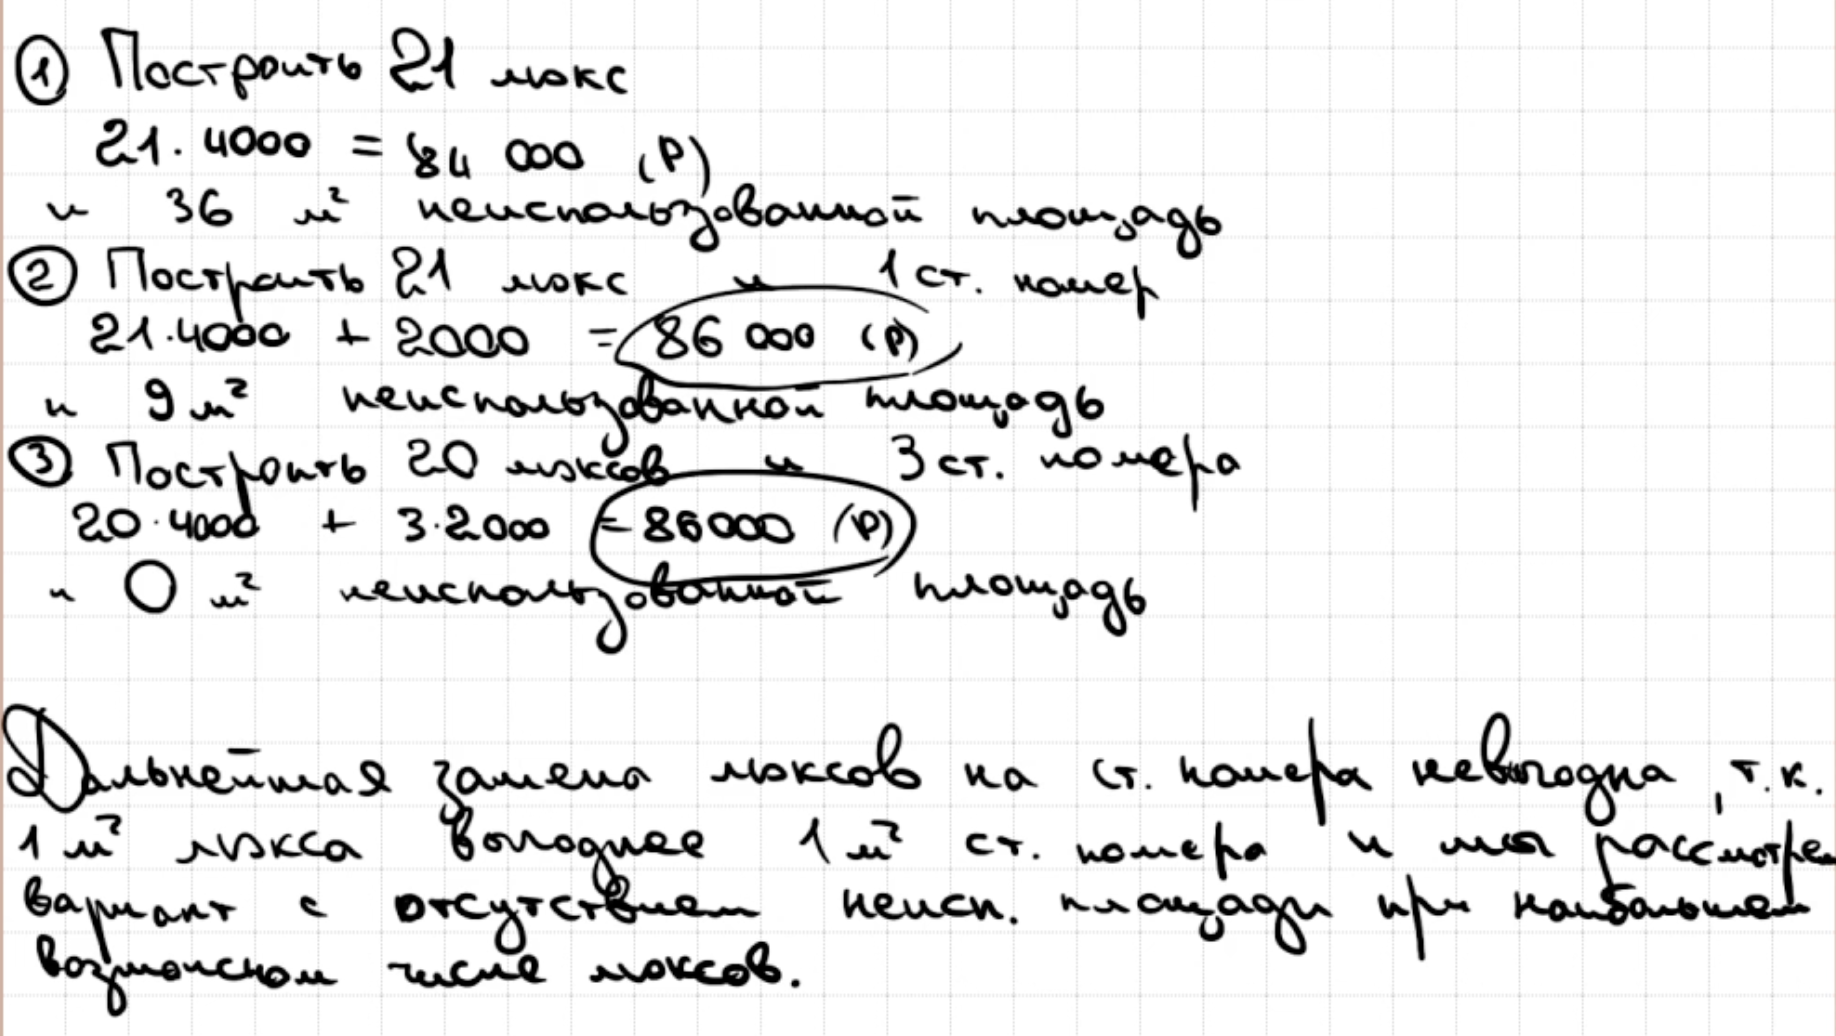 ① Построить 21 люкс
21·4000 = 84 000 (р)
и 36 м² неиспользованной площадь
② Построить 21 люкс и 1 ст. номер
21·4000 + 2000 = 86 000 (р)
и 9 м² неиспользованной площадь
③ Построить 20 люксов и 3 ст. номера
20·4000 + 3·2000 = 86000 (р)
и 0 м² неиспользованной площадь
Дальнейшая замена люксов на ст. номера невыгодна, т.к.
1 м² люкса выгоднее 1 м² ст. номера и мы рассмотрели
вариант с отсутствием неисп. площади при наибольшем
возможном числе люксов.